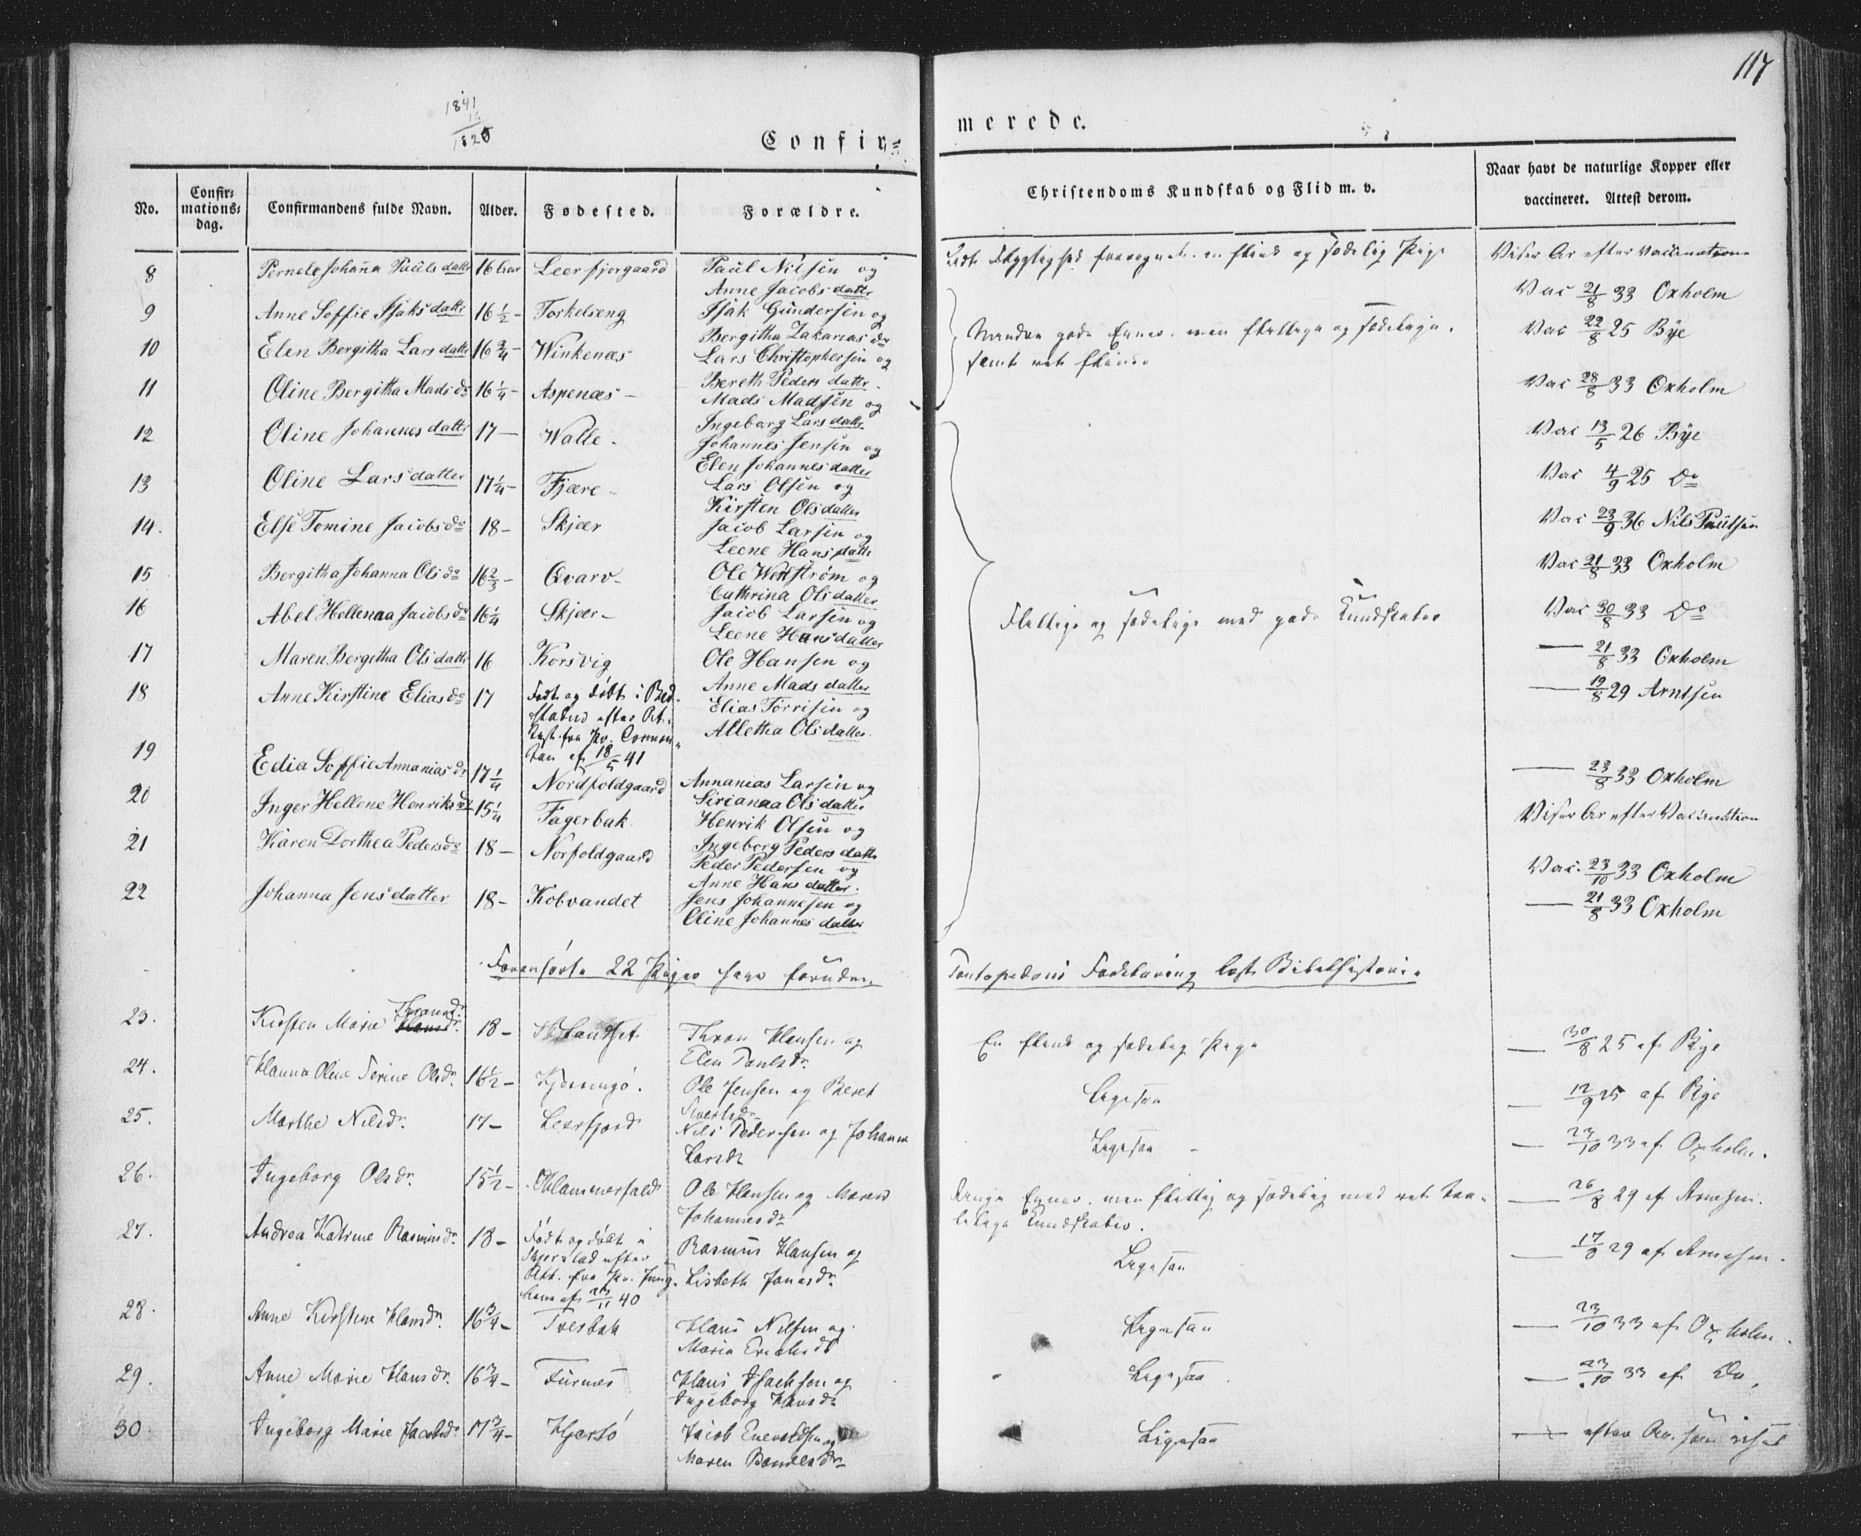 117
1841
16
1825
Confir=
merede.
No.
Confir=
mations=
dag.
Confirmandens fulde Navn.
Alder.
Fødested.
Forældre.
Christendoms Kundskab og Flid m. v.
Naar havt de naturlige Kopper eller
vaccineret. Attest derom.
8 Pernele Johanna Pauls datter 16 Leerfjorgaard Paul Nilsen og en flink og sædelig Pige Viser Ar efter Vaccination
Anne Jacobs datter
9 Anne Soffie Isaks datter 16 1/2 – Torkelseng Isak Gundersen og Vac 21/8 33 Oxholm
Bergitha Zakarias dr
10 Elen Bergitha Lars datter 16 3/4 – Winkenæs Lars Christophersen og Mindre gode Evner, men flittige og sædelige, Vac 22/8 25 Bye
samt ret flinke
Bereth Peders datter
11 Oline Bergitha Mads dr 16 1/4 – Aspenæs – Mads Madsen og Vac 28/8 33 Oxholm
Ingeborg Lars datter
12 Oline Johannes datter 17 – Walle – Johannes Jensen og Vac 13/5 26 Bye
Elen Johannes datter
13 Oline Lars datter 17 1/4 – Fjære – Lars Olsen og Vac 4/9 25 Do
Kirsten Ols datter
14. Else Tomine Jacobs dr 18 – Skjær Jacob Larsen og Vac 23/9 36 Nils Paulsen
Leene Hans datter
15 Bergitha Johanna Ols dr 16 2/3 – Qvarv – Ole Westrøm og Vac 21/8 33 Oxholm
Cathrina Ols datter
16 Abel Hellenaa Jacobs dr 16 1/4 Skjær – Jacob Larsen og Flittige og sædelige med gode Kundskaber Vac 30/8 33 Do
Leene Hans datter
17 Maren Bergetha Ols datter 16 Korsvig Ole Hansen og — 21/8 33 Oxholm
Anne Mads datter
18 Anne Kirstine Elias dr 17 Født og døbt i Bud= Elias Torrisen og — 19/8 29 Arntsen
stabud efter At=
Alletha Ols datter
test fra Pr.
af 18/5 41
19 Edia Soffie Annanias dr 17 1/4 Nordfoldgaard Annanias Larsen og — 23/8 33 Oxholm
Sirianaa Ols datter
20 Inger Hellene Henriks dr 15 1/4 Fagerbak Henrik Olsen og Viser Ar efter Vaccination
Ingeborg Peders datter
21 Karen Dorthea Peders dr 18 – Norfoldgaard Peder Pedersen og Vac. 23/10 33 Oxholm
Anne Hans datter.
22 Johanna Jens datter 18 – Kobvandet Jens Johannesen og — 21/8 33 Oxholm
Oline Johannes datter
Foranførte 22 Piger have foruden Pontopedans Forklaring læst Bibelhistorie
23. Kirsten Marie Throns dr. 18 – Thron Hansen og En flink og sædelig Pige — 30/8 25 af Bye
Elen Pauls dr
24. Hanna Oline Terine Ols dr. 16 1/2 – Kjerringø. Ole Jensen og Beret Ligesaa — 12/9 25 af Bye
Siverts dr
25. Marthe Nils dr. 17 – Leerfjord Nils Pedersen og Johanna Ligesaa – — 23/10 33 af Oxholm.
Lars dr
26. Ingeborg Ols dr. 15 1/2 – Ole Hansen og Maren Ringe Evner, men flittig og sædelig med ret taa= — 26/8 29 af Arntsen.
Johannes dr
lelige Kundskaber.
27. Andrea Katrine Rasmus dr. 18 – Født og døbt i Rasmus Hansen og Ligesaa — 17/8 29 af Arntsen.
Skjerstad efter
Att. fra Pr. Jung= Lisbeth Jonas dr
hans af 23/11 40
28. Anne Kirstine Hans dr. 16 3/4 – Tverbak Hans Nilsen og Ligesaa — 23/10 33 af Oxholm.
Maria Erichs dr
29. Anne Marie Hans dr. 16 3/4 – Furnes Hans Isachsen og Ligesaa — 23/10 33 af Do.
Ingeborg Hans dr
30. Ingeborg Marie Jacobs dr 17 3/4 – Hjertø Jacob Enevoldsen og Ligesaa — efter Ar. som vises
Maren Daniels dr